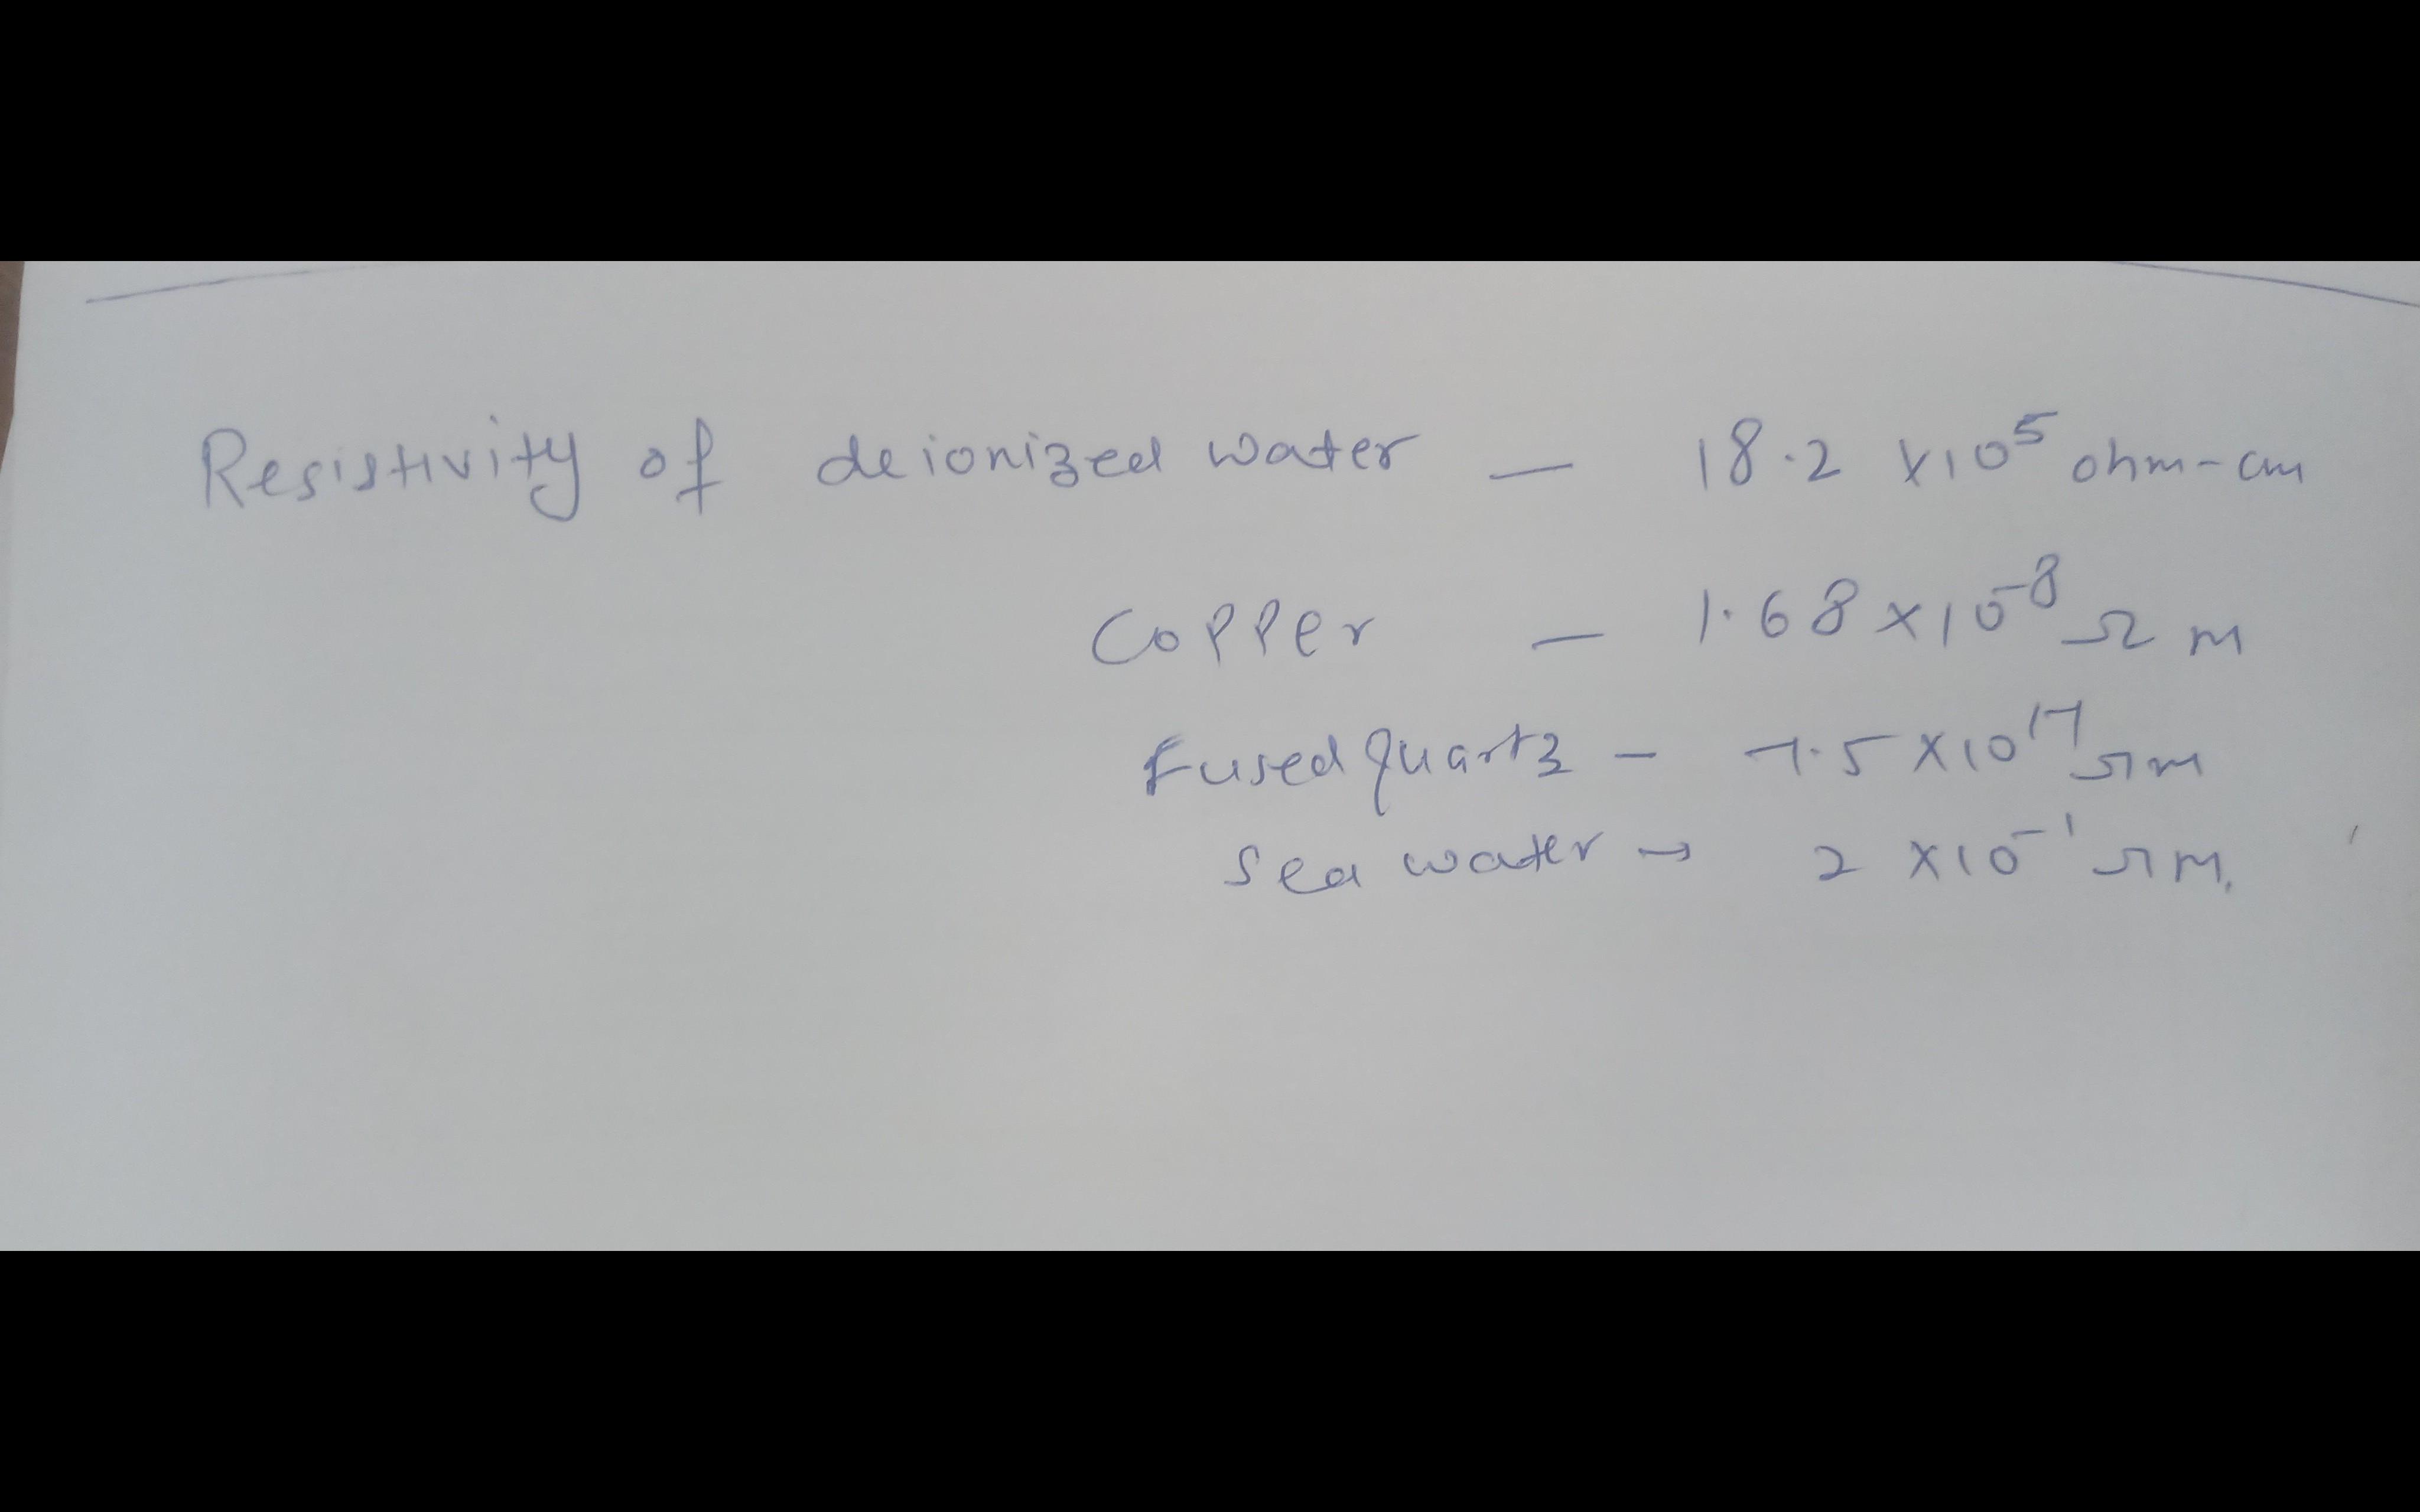 Resistivity of deionized water — 18.2 x10⁵ ohm-cm
Copper — 1.68 x 10⁻⁸ Ω m
Fused Quartz — 7.5 x10¹⁷ Ωm
Sea water → 2 x10⁻¹ Ωm.